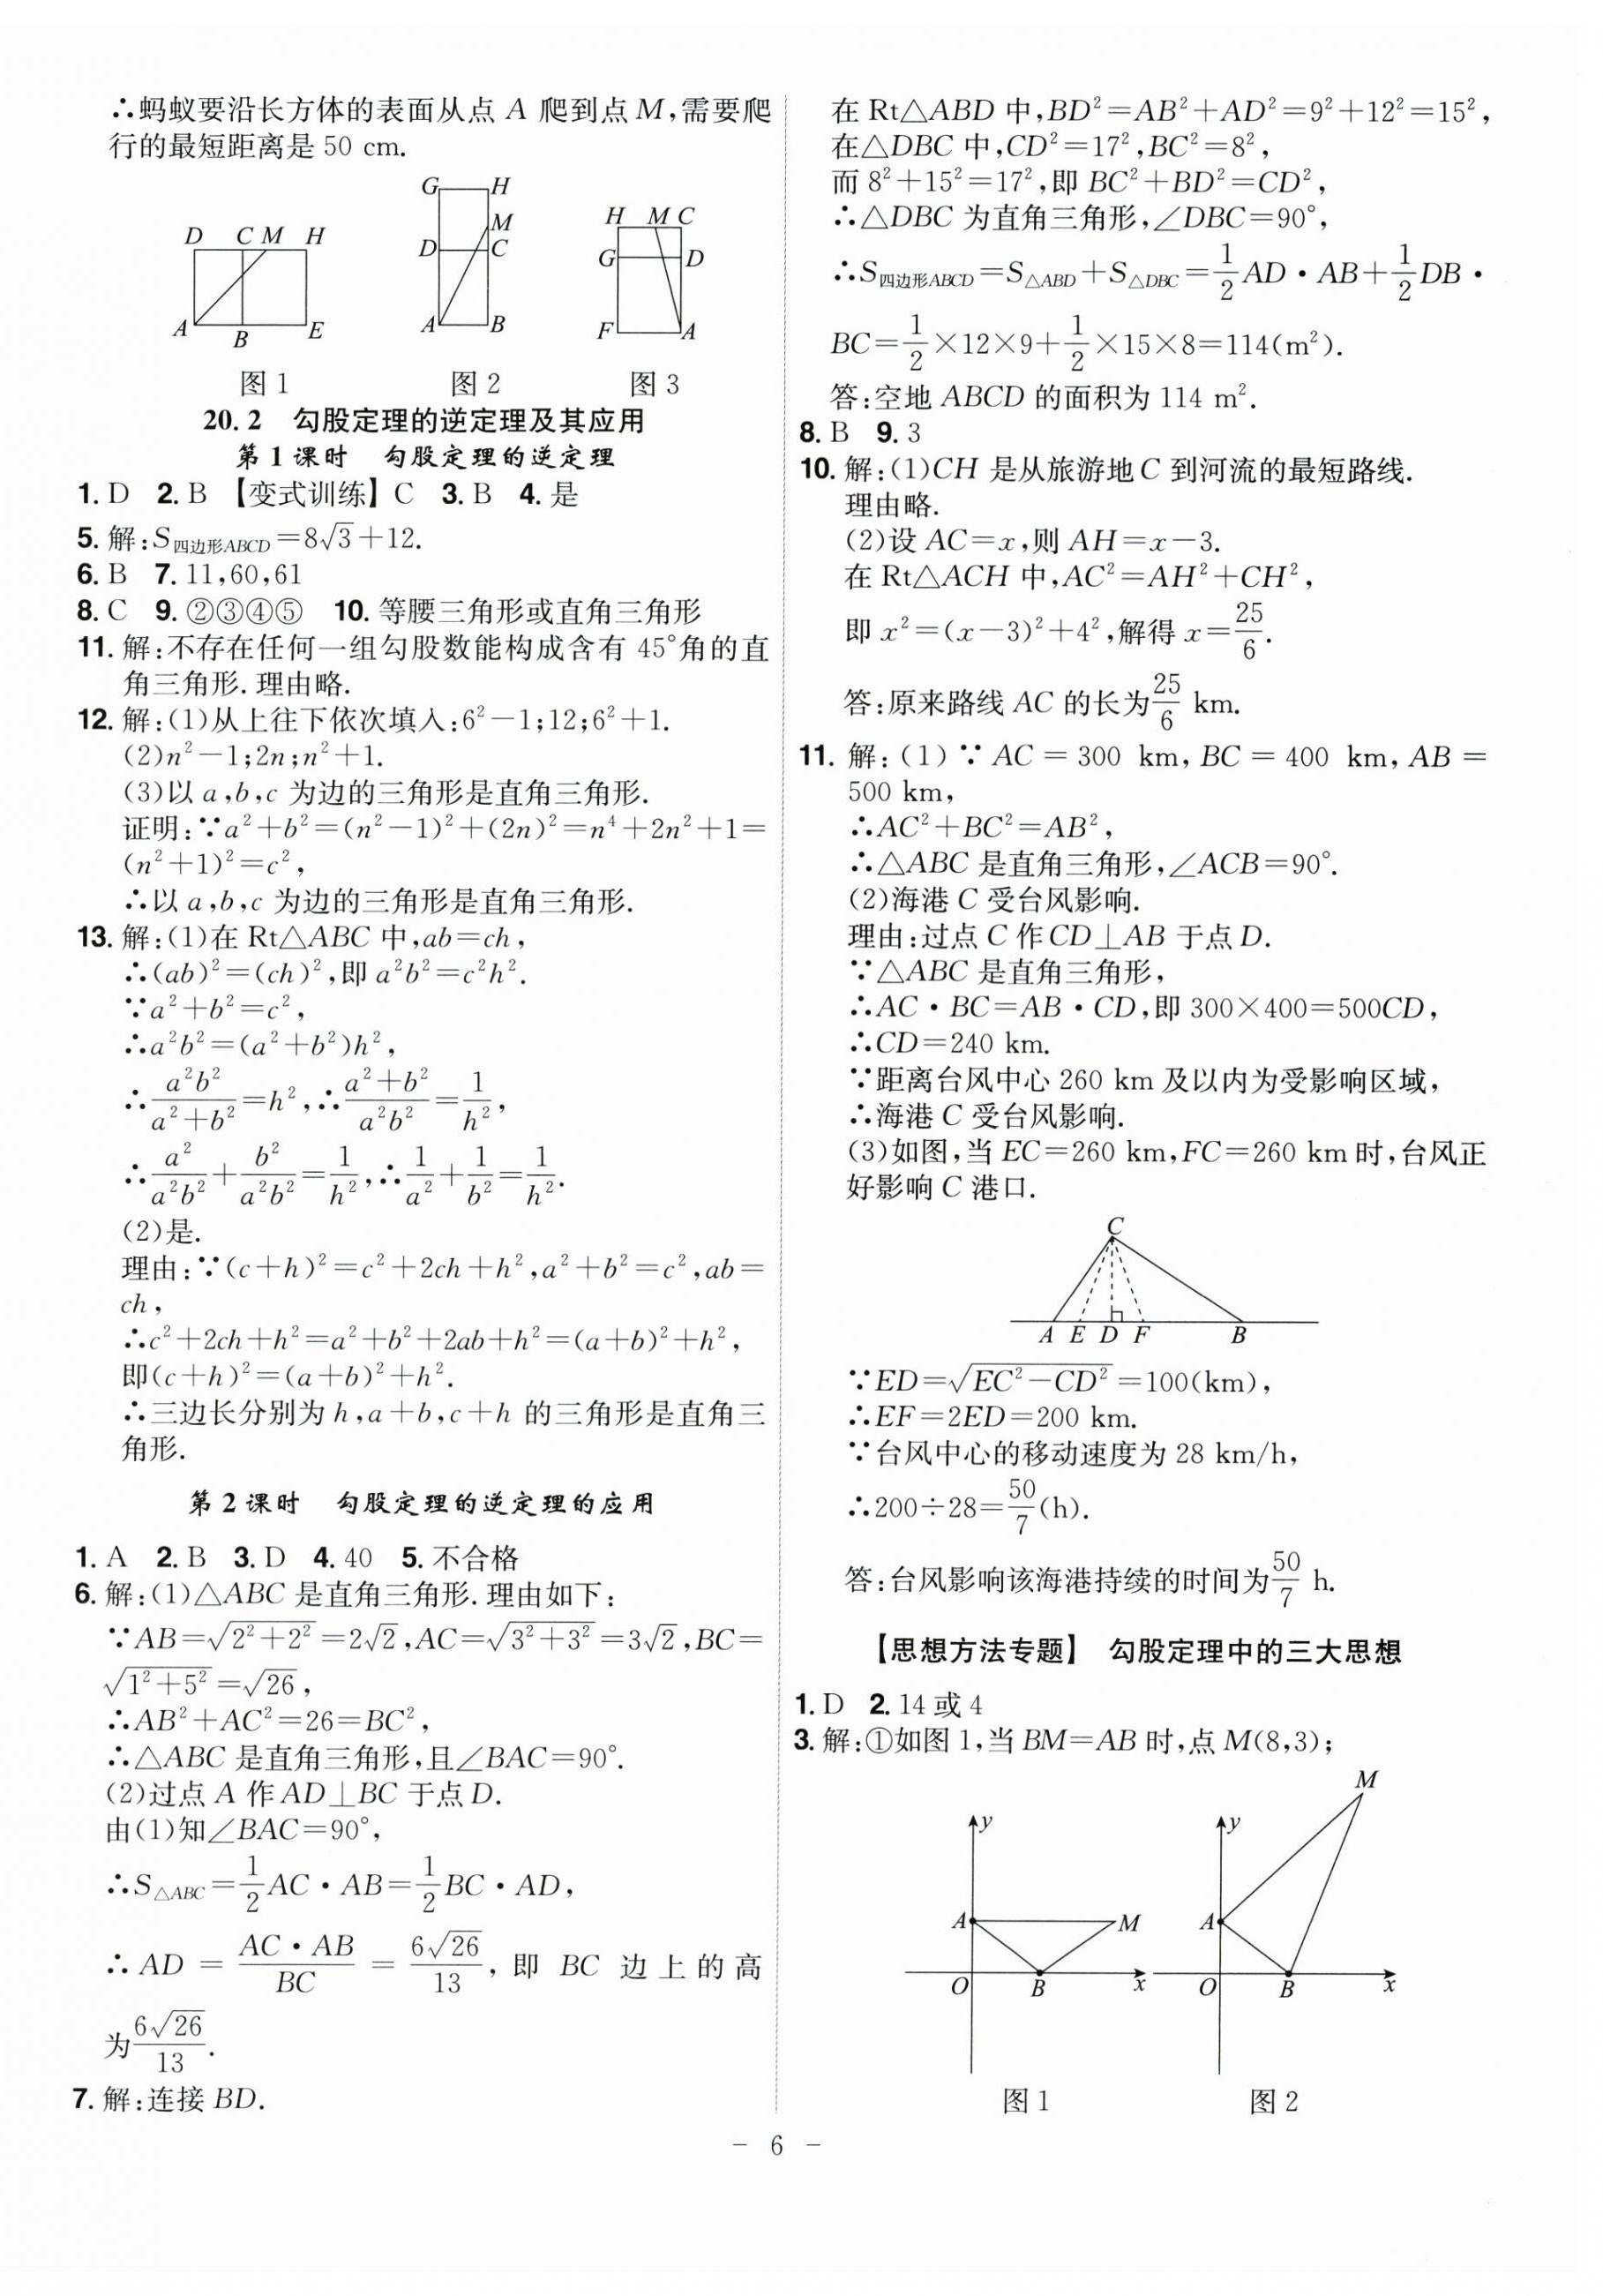 ∴蚂蚁要沿长方体的表面从点 A 爬到点 M,需要爬
行的最短距离是 50 cm.
D C M H
A B E
图 1
G H
M
D C
A B
图 2
H M C
G D
F A
图 3
20.2 勾股定理的逆定理及其应用
第 1 课时 勾股定理的逆定理
1. D 2. B 【变式训练】C 3. B 4. 是
5. 解:S四边形ABCD=8√3+12.
6. B 7. 11,60,61
8. C 9. ②③④⑤ 10. 等腰三角形或直角三角形
11. 解:不存在任何一组勾股数能构成含有 45°角的直
角三角形. 理由略.
12. 解:(1)从上往下依次填入:6²-1;12;6²+1.
(2)n²-1;2n;n²+1.
(3)以 a,b,c 为边的三角形是直角三角形.
证明:∵a²+b²=(n²-1)²+(2n)²=n⁴+2n²+1=
(n²+1)²=c²,
∴以 a,b,c 为边的三角形是直角三角形.
13. 解:(1)在 Rt△ABC 中,ab=ch,
∴(ab)²=(ch)²,即 a²b²=c²h².
∵a²+b²=c²,
∴a²b²=(a²+b²)h²,
∴a²b²/(a²+b²)=h²,∴(a²+b²)/a²b²=1/h²,
∴a²/a²b²+b²/a²b²=1/h²,∴1/a²+1/b²=1/h².
(2)是.
理由:∵(c+h)²=c²+2ch+h²,a²+b²=c²,ab=
ch,
∴c²+2ch+h²=a²+b²+2ab+h²=(a+b)²+h²,
即(c+h)²=(a+b)²+h².
∴三边长分别为 h,a+b,c+h 的三角形是直角三
角形.
第 2 课时 勾股定理的逆定理的应用
1. A 2. B 3. D 4. 40 5. 不合格
6. 解:(1)△ABC 是直角三角形. 理由如下:
∵AB=√(2²+2²)=2√2,AC=√(3²+3²)=3√2,BC=
√(1²+5²)=√26,
∴AB²+AC²=26=BC²,
∴△ABC 是直角三角形,且∠BAC=90°.
(2)过点 A 作 AD⊥BC 于点 D.
由(1)知∠BAC=90°,
∴S△ABC=1/2AC·AB=1/2BC·AD,
∴AD=AC·AB/BC=6√26/13,即 BC 边上的高
为6√26/13.
7. 解:连接 BD.
在 Rt△ABD 中,BD²=AB²+AD²=9²+12²=15²,
在△DBC 中,CD²=17²,BC²=8²,
而 8²+15²=17²,即 BC²+BD²=CD²,
∴△DBC 为直角三角形,∠DBC=90°,
∴S四边形ABCD=S△ABD+S△DBC=1/2AD·AB+1/2DB·
BC=1/2×12×9+1/2×15×8=114(m²).
答:空地 ABCD 的面积为 114 m².
8. B 9. 3
10. 解:(1)CH 是从旅游地 C 到河流的最短路线.
理由略.
(2)设 AC=x,则 AH=x-3.
在 Rt△ACH 中,AC²=AH²+CH²,
即 x²=(x-3)²+4²,解得 x=25/6.
答:原来路线 AC 的长为25/6 km.
11. 解:(1)∵AC=300 km,BC=400 km,AB=
500 km,
∴AC²+BC²=AB²,
∴△ABC 是直角三角形,∠ACB=90°.
(2)海港 C 受台风影响.
理由:过点 C 作 CD⊥AB 于点 D.
∵△ABC 是直角三角形,
∴AC·BC=AB·CD,即 300×400=500CD,
∴CD=240 km.
∵距离台风中心 260 km 及以内为受影响区域,
∴海港 C 受台风影响.
(3)如图,当 EC=260 km,FC=260 km 时,台风正
好影响 C 港口.
C
A E D F B
∵ED=√(EC²-CD²)=100(km),
∴EF=2ED=200 km.
∵台风中心的移动速度为 28 km/h,
∴200÷28=50/7(h).
答:台风影响该海港持续的时间为50/7 h.
【思想方法专题】 勾股定理中的三大思想
1. D 2. 14 或 4
3. 解:①如图 1,当 BM=AB 时,点 M(8,3);
y
A M
O B x
图 1
M
y
A
O B x
图 2
- 6 -